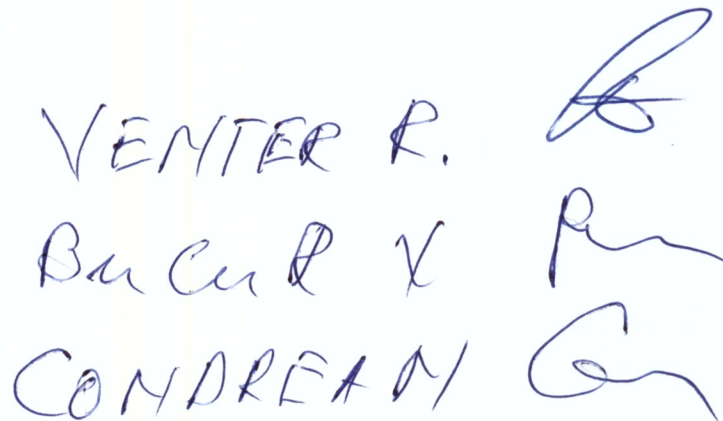 VENTER R.
BucuR V
CONDREAN